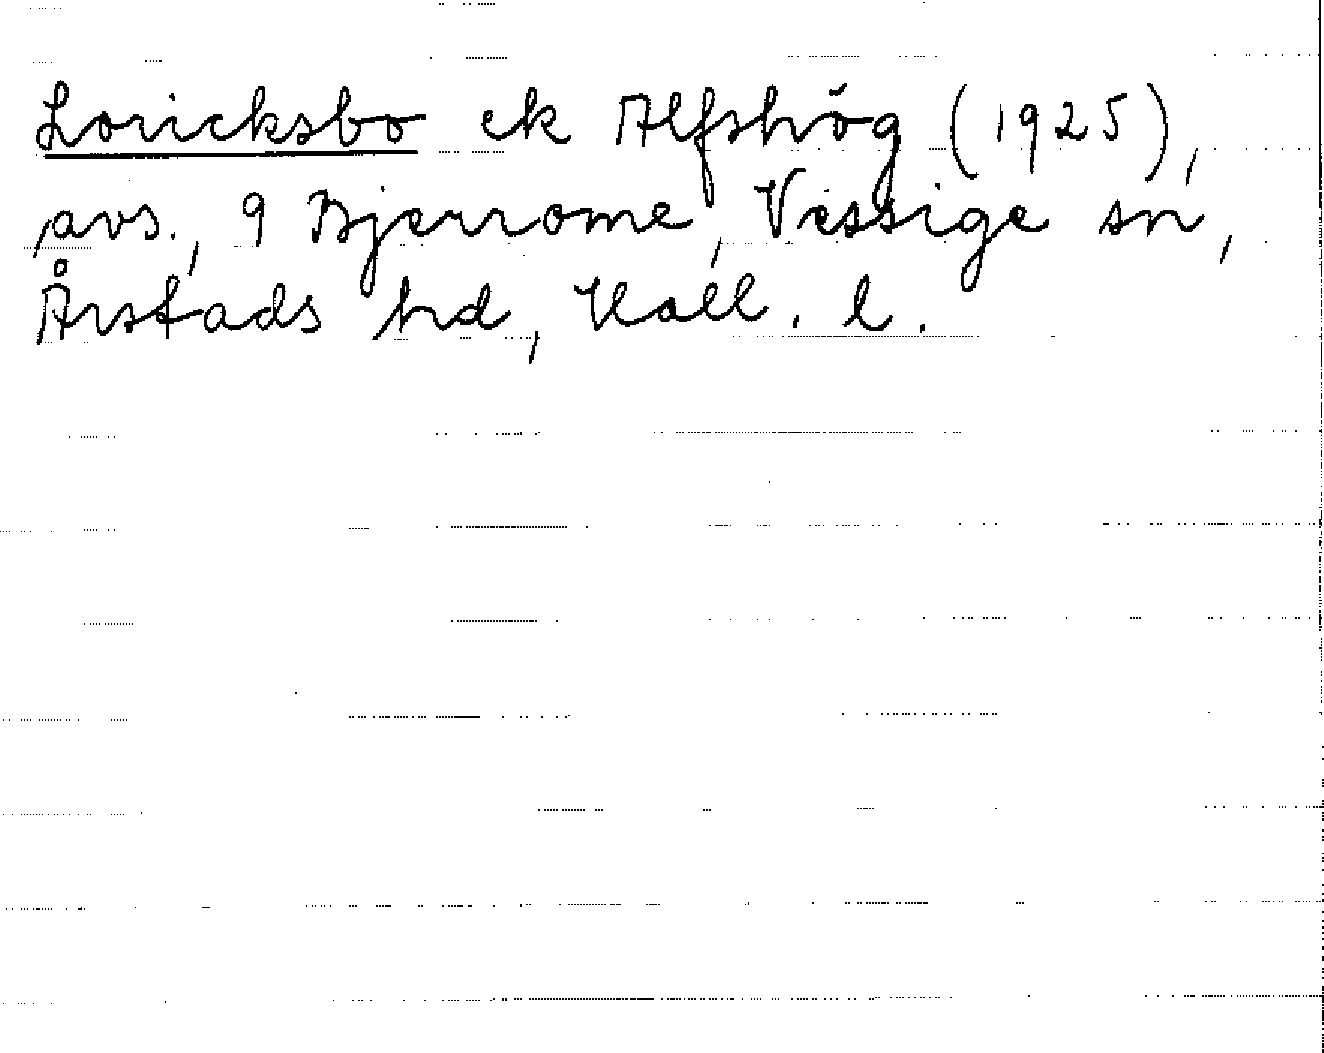 Loricksbo ek Alfshög (1925),
avs., 9 Bjerrome, Vessige sn,
Årstads hd, Hall. l.